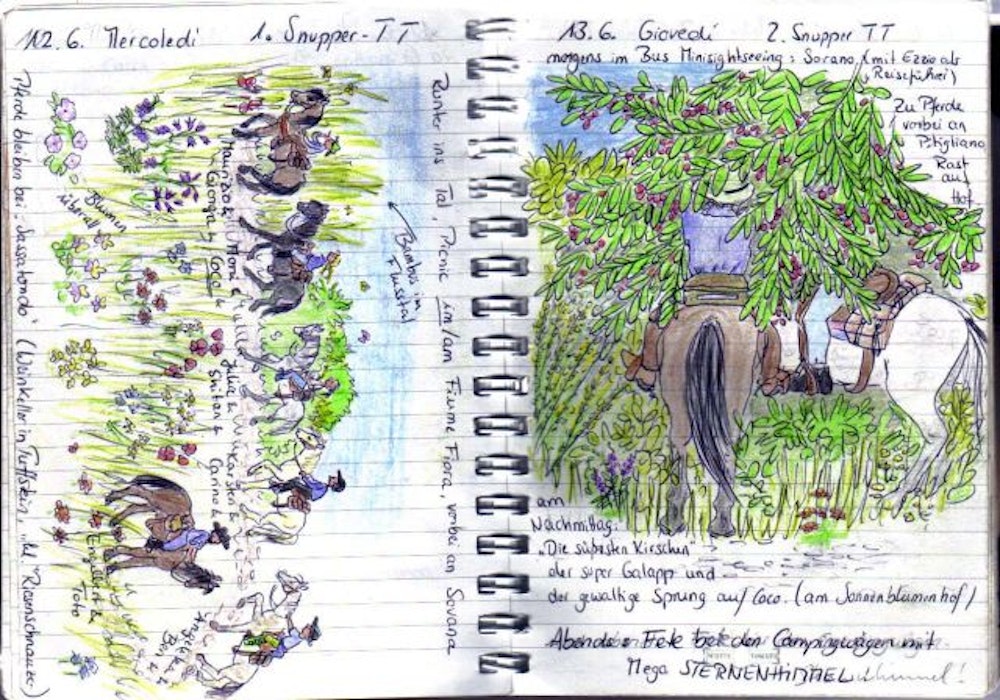 12.6. Mercoledi 1. Snupper-TT
Runter ins Tal, Picnic im/am Fiume Fiora, vorbei an Sovana
Bambus im
Flusstal
Blumen
überall
Toto
Pferde bleiben bei "Sassotondo" (Weinkeller in Tuffstein, "kl. Riesenschnauzer)
13.6. Giovedi 2. Snupper TT
morgens im Bus Minisightseeing: Sorano (mit Ezzio als
Reiseführer)
Zu Pferde
vorbei an
Pitigliano
Rast
auf
Hof
am
Nachmittag:
"Die süßesten Kirschen"
der super Galopp und
der gewaltige Sprung auf Coco. (am Sonnenblumenhof)
Abends: Fete bei den Campingwagen mit
Mega STERNENHIMMEL